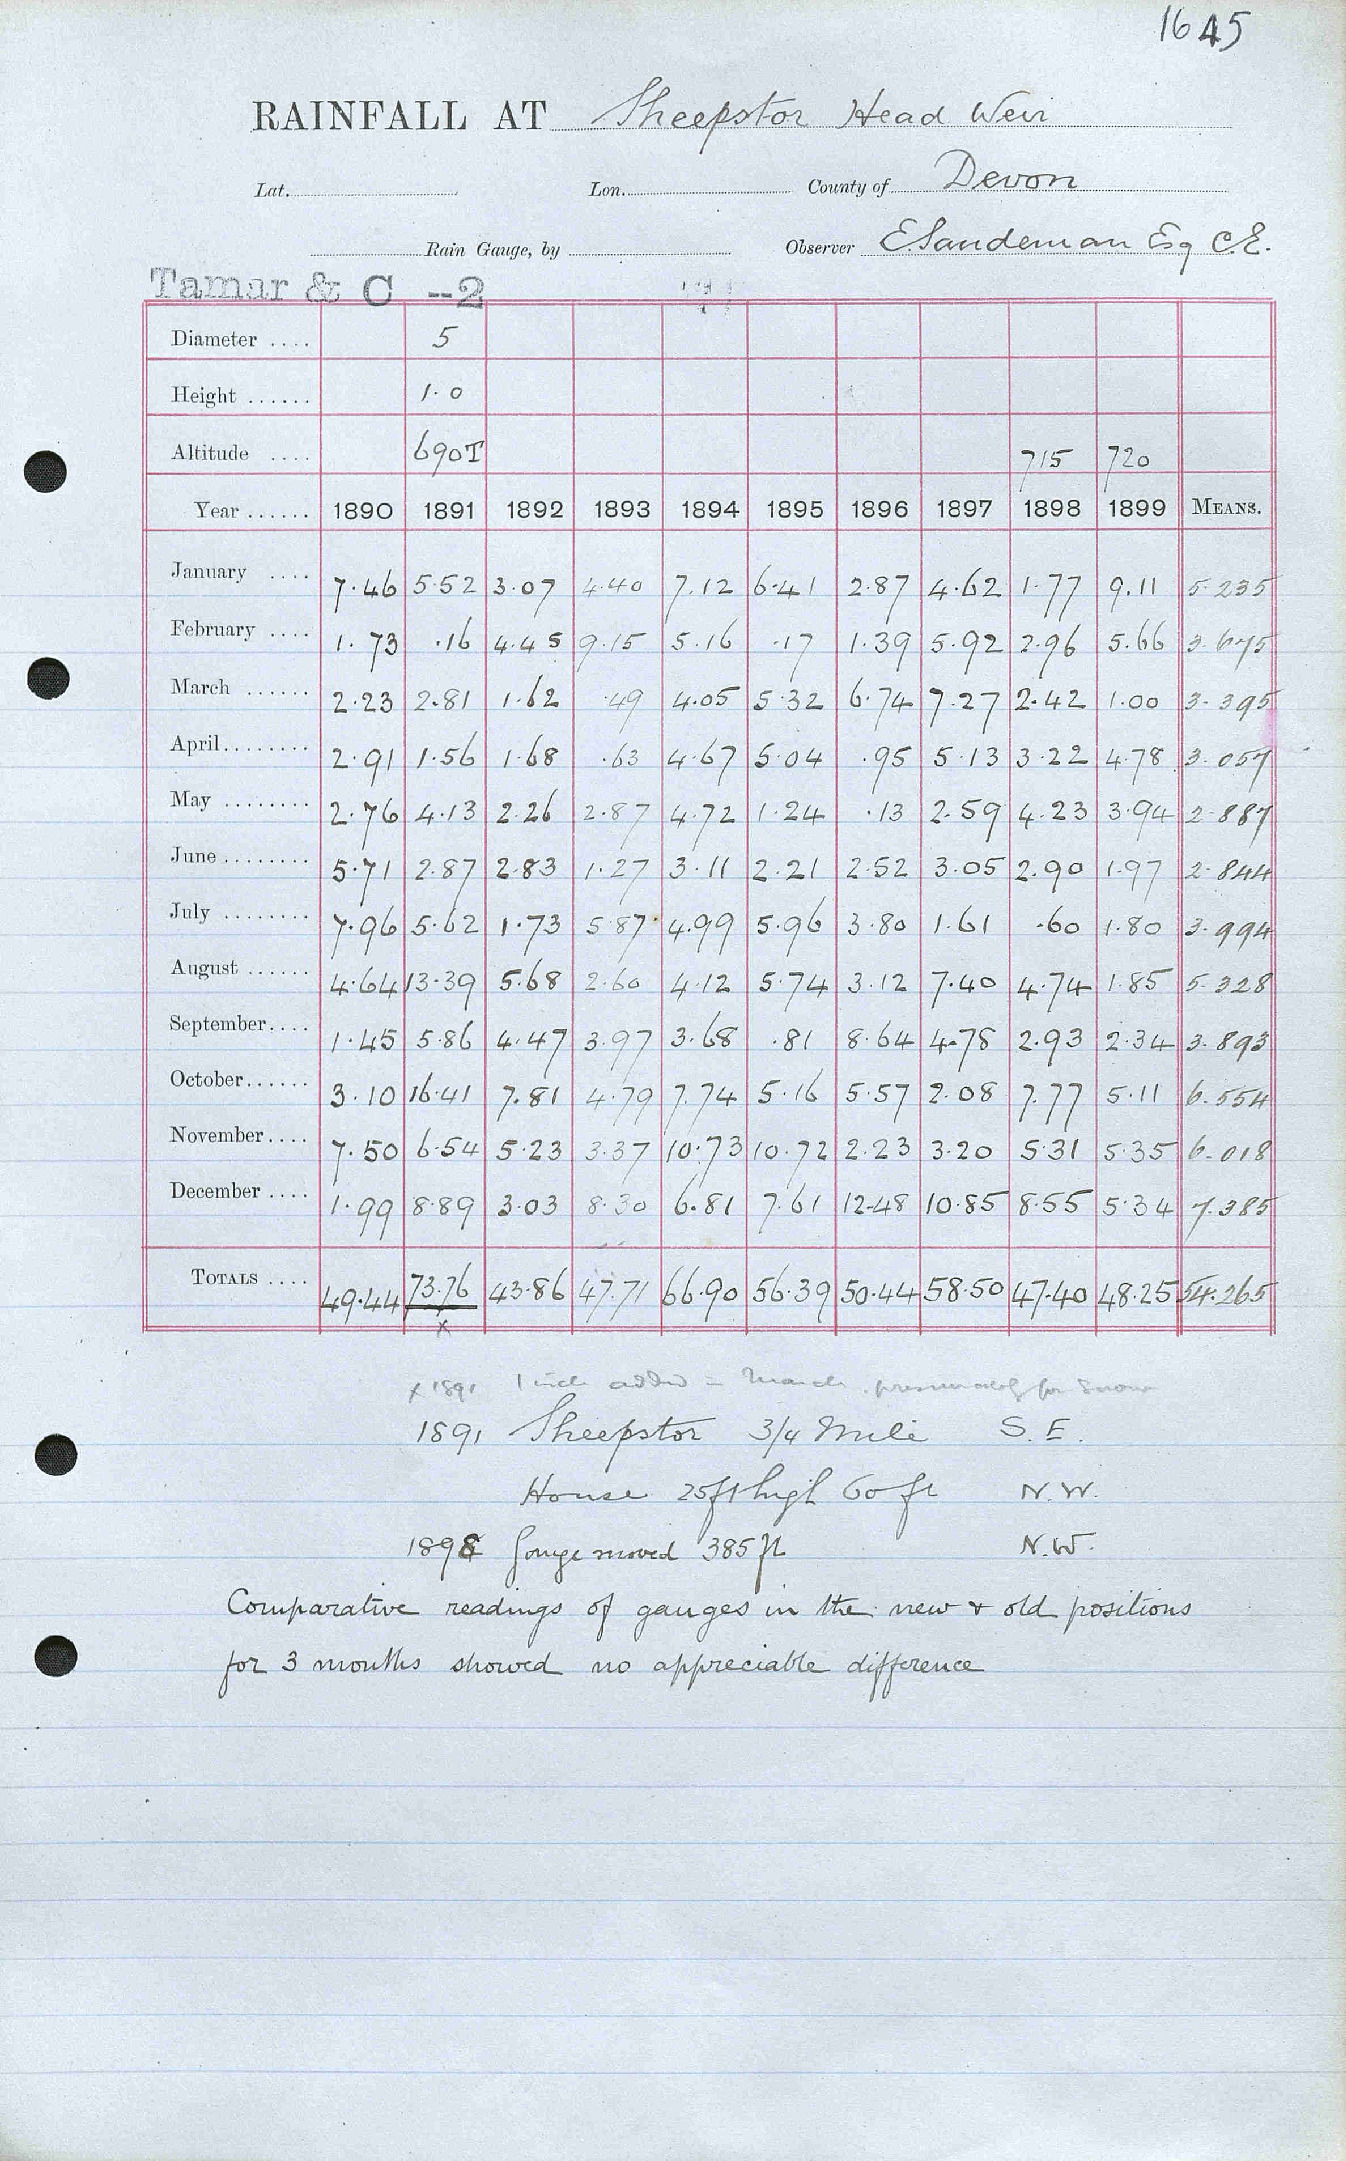 1645
RAINFALL AT Sheepstor Head Weir
Lat. Lon. County of Devon
Rain Gauge, by Observer E Sandeman Esq C.E.
Tamar & C --2
Diameter .... 5
Height ...... 1.0
Altitude .... 690T 715 720
Year ...... 1890 1891 1892 1893 1894 1895 1896 1897 1898 1899 MEANS.
January .... 7.46 5.52 3.07 4.40 7.12 6.41 2.87 4.62 1.77 9.11 5.235
February .... 1.73 .16 4.45 9.15 5.16 .17 1.39 5.92 2.96 5.66 3.675
March ...... 2.23 2.81 1.62 .49 4.05 5.32 6.74 7.27 2.42 1.00 3.395
April........ 2.91 1.56 1.68 .63 4.67 5.04 .95 5.13 3.22 4.78 3.057
May ........ 2.76 4.13 2.26 2.87 4.72 1.24 .13 2.59 4.23 3.94 2.887
June ........ 5.71 2.87 2.83 1.27 3.11 2.21 2.52 3.05 2.90 1.97 2.844
July ........ 7.96 5.62 1.73 5.87 4.99 5.96 3.80 1.61 .60 1.80 3.994
August ...... 4.64 13.39 5.68 2.60 4.12 5.74 3.12 7.40 4.74 1.85 5.328
September.... 1.45 5.86 4.47 3.97 3.68 .81 8.64 4.78 2.93 2.34 3.893
October...... 3.10 16.41 7.81 4.79 7.74 5.16 5.57 2.08 7.77 5.11 6.554
November.... 7.50 6.54 5.23 3.37 10.73 10.72 2.23 3.20 5.31 5.35 6.018
December .... 1.99 8.89 3.03 8.30 6.81 7.61 12.48 10.85 8.55 5.34 7.385
TOTALS .... 49.44 73.76 43.86 47.71 66.90 56.39 50.44 58.50 47.40 48.25 54.265
x
x 1891 1 inch added in March, presumably for snow
1891 Sheepstor 3/4 Mile S.E.
House 25ft high 60 ft N.W.
1898 Gauge moved 385 ft N.W.
Comparative readings of gauges in the new & old positions
for 3 months showed no appreciable difference